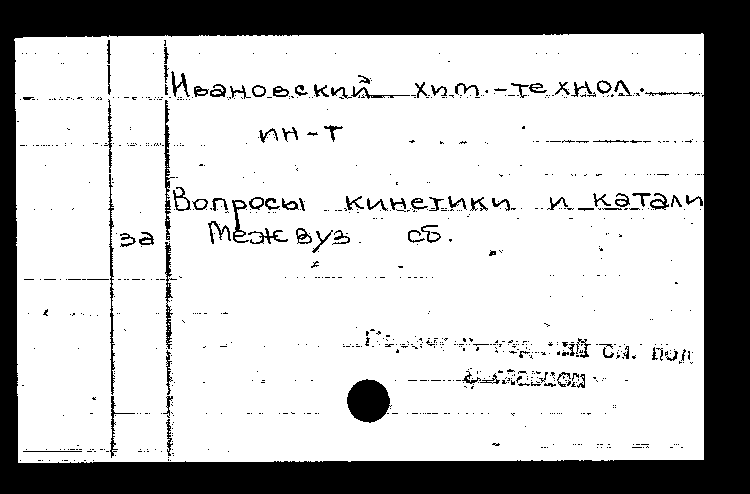 Ивановский хим.-технол.
ин-т
Вопросы кинетики и катали
за Межвуз. сб.
см. под